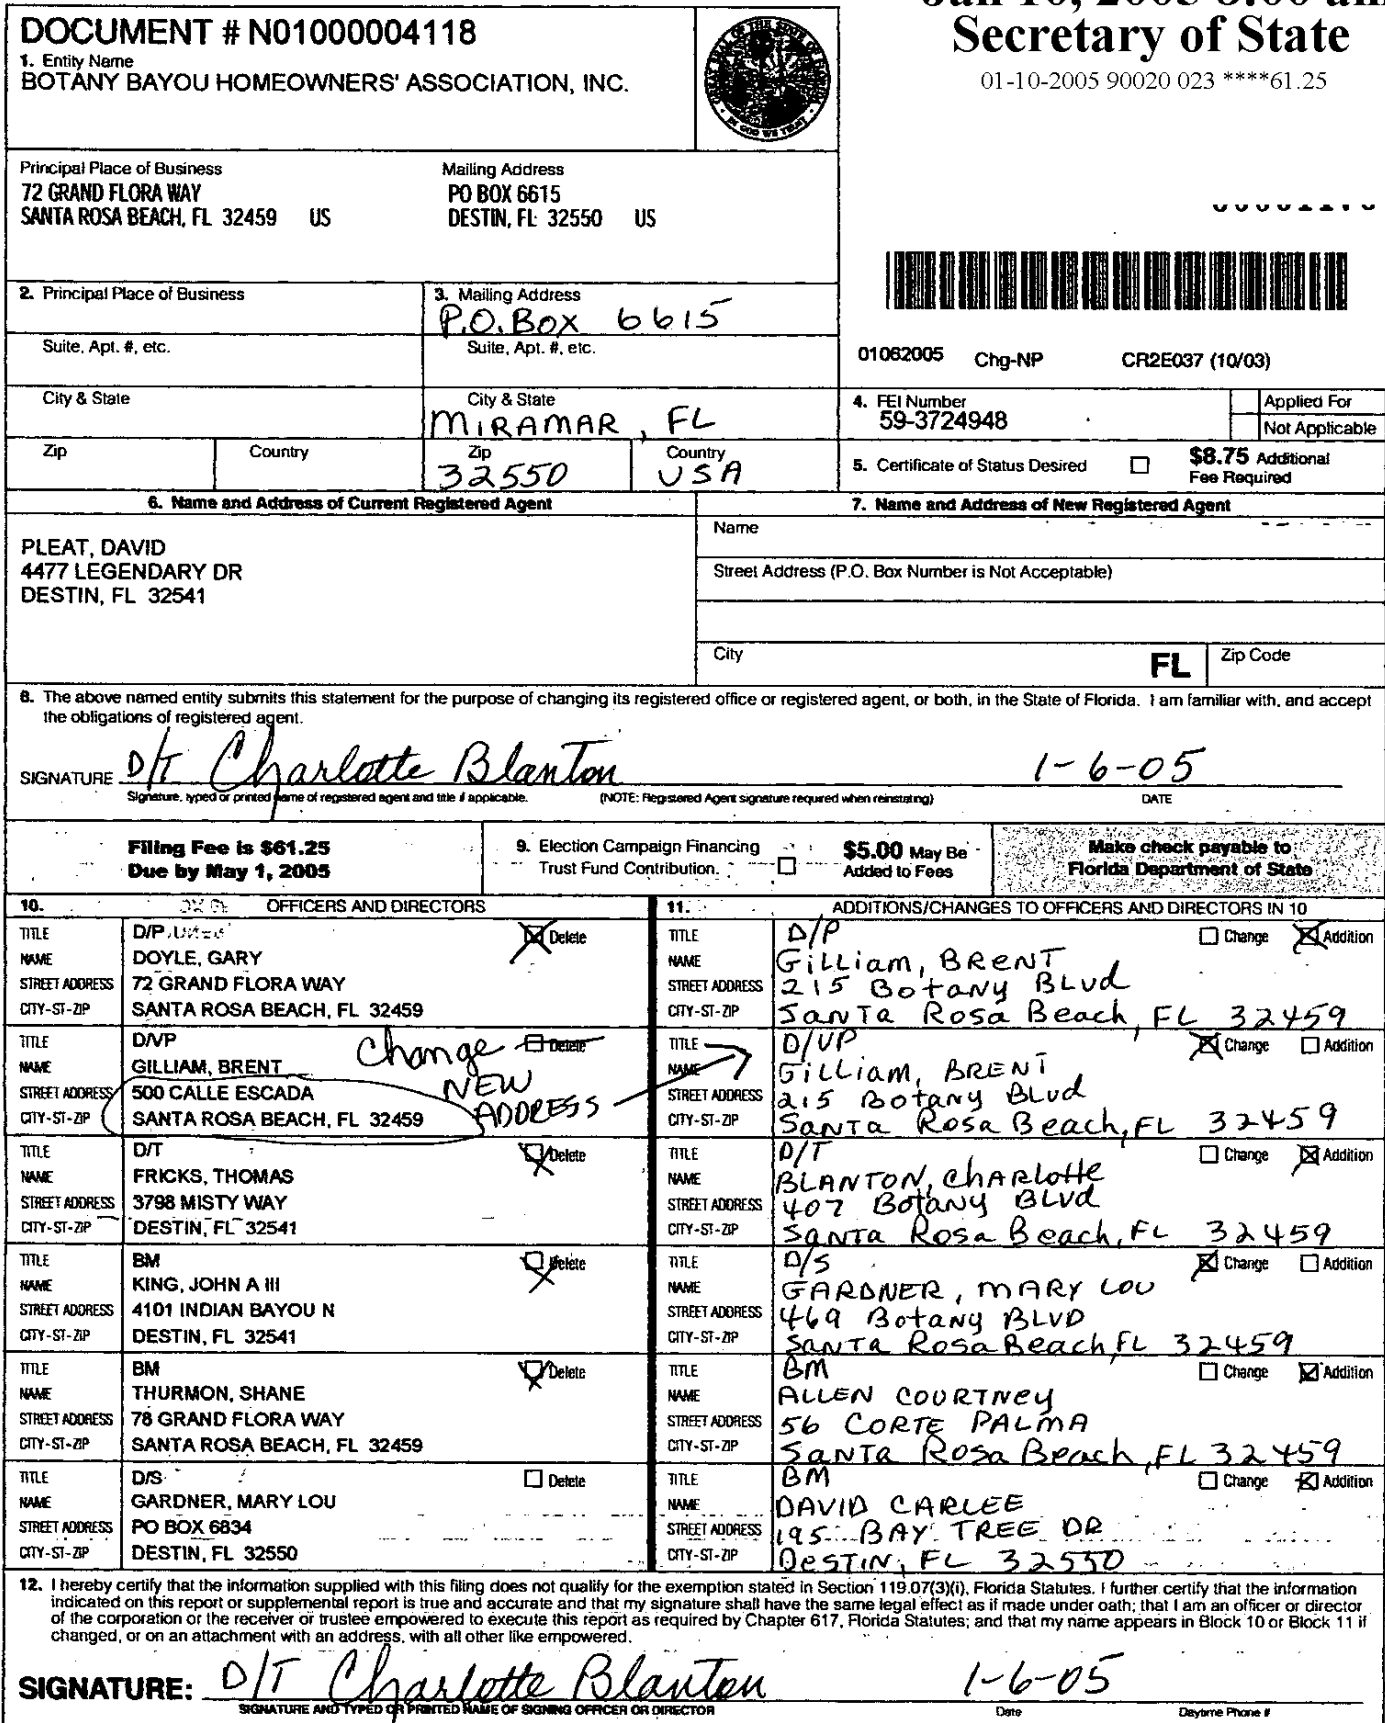 DOCUMENT # N01000004118
1. Entity Name
BOTANY BAYOU HOMEOWNERS' ASSOCIATION, INC.
Secretary of State
01-10-2005 90020 023 ****61.25
Principal Place of Business
72 GRAND FLORA WAY
SANTA ROSA BEACH, FL 32459 US
Mailing Address
PO BOX 6615
DESTIN, FL 32550 US
2. Principal Place of Business
3. Mailing Address
P.O. Box 6615
Suite, Apt. #, etc.
Suite, Apt. #, etc.
City & State
City & State
MIRAMAR, FL
Zip
Country
Zip
32550
Country
USA
01062005 Chg-NP CR2E037 (10/03)
4. FEI Number
59-3724948
Applied For
Not Applicable
5. Certificate of Status Desired
$8.75 Additional
Fee Required
6. Name and Address of Current Registered Agent
PLEAT, DAVID
4477 LEGENDARY DR
DESTIN, FL 32541
7. Name and Address of New Registered Agent
Name
Street Address (P.O. Box Number is Not Acceptable)
City
FL
Zip Code
8. The above named entity submits this statement for the purpose of changing its registered office or registered agent, or both, in the State of Florida. I am familiar with, and accept
the obligations of registered agent.
SIGNATURE D/T Charlotte Blanton 1-6-05
Signature, typed or printed name of registered agent and title if applicable. (NOTE: Registered Agent signature required when reinstating) DATE
Filing Fee is $61.25
Due by May 1, 2005
9. Election Campaign Financing
Trust Fund Contribution.
$5.00 May Be
Added to Fees
Make check payable to
Florida Department of State
10. OFFICERS AND DIRECTORS
TITLE D/P Delete
NAME DOYLE, GARY
STREET ADDRESS 72 GRAND FLORA WAY
CITY-ST-ZIP SANTA ROSA BEACH, FL 32459
TITLE D/VP Delete
NAME GILLIAM, BRENT
STREET ADDRESS 500 CALLE ESCADA
CITY-ST-ZIP SANTA ROSA BEACH, FL 32459
Change
NEW
ADDRESS
TITLE D/T Delete
NAME FRICKS, THOMAS
STREET ADDRESS 3798 MISTY WAY
CITY-ST-ZIP DESTIN, FL 32541
TITLE BM Delete
NAME KING, JOHN A III
STREET ADDRESS 4101 INDIAN BAYOU N
CITY-ST-ZIP DESTIN, FL 32541
TITLE BM Delete
NAME THURMON, SHANE
STREET ADDRESS 78 GRAND FLORA WAY
CITY-ST-ZIP SANTA ROSA BEACH, FL 32459
TITLE D/S Delete
NAME GARDNER, MARY LOU
STREET ADDRESS PO BOX 6834
CITY-ST-ZIP DESTIN, FL 32550
11. ADDITIONS/CHANGES TO OFFICERS AND DIRECTORS IN 10
TITLE D/P Change Addition
NAME GiLLiam, BRENT
STREET ADDRESS 215 Botany BLvd
CITY-ST-ZIP Santa Rosa Beach, FL 32459
TITLE D/VP Change Addition
NAME GiLLiam, BRENT
STREET ADDRESS 215 Botany BLvd
CITY-ST-ZIP Santa Rosa Beach, FL 32459
TITLE D/T Change Addition
NAME BLANTON, CHARLotte
STREET ADDRESS 407 Botany BLvd
CITY-ST-ZIP Santa Rosa Beach, FL 32459
TITLE D/S Change Addition
NAME GARDNER, MARY LOU
STREET ADDRESS 469 Botany BLVD
CITY-ST-ZIP Santa Rosa Beach, FL 32459
TITLE BM Change Addition
NAME ALLEN COURTNEY
STREET ADDRESS 56 CORTE PALMA
CITY-ST-ZIP Santa Rosa Beach, FL 32459
TITLE BM Change Addition
NAME DAVID CARLEE
STREET ADDRESS 195 BAY TREE DR
CITY-ST-ZIP DESTIN, FL 32550
12. I hereby certify that the information supplied with this filing does not qualify for the exemption stated in Section 119.07(3)(i), Florida Statutes. I further certify that the information
indicated on this report or supplemental report is true and accurate and that my signature shall have the same legal effect as if made under oath; that I am an officer or director
of the corporation or the receiver or trustee empowered to execute this report as required by Chapter 617, Florida Statutes; and that my name appears in Block 10 or Block 11 if
changed, or on an attachment with an address, with all other like empowered.
SIGNATURE: D/T Charlotte Blanton 1-6-05
SIGNATURE AND TYPED OR PRINTED NAME OF SIGNING OFFICER OR DIRECTOR Date Daytime Phone #